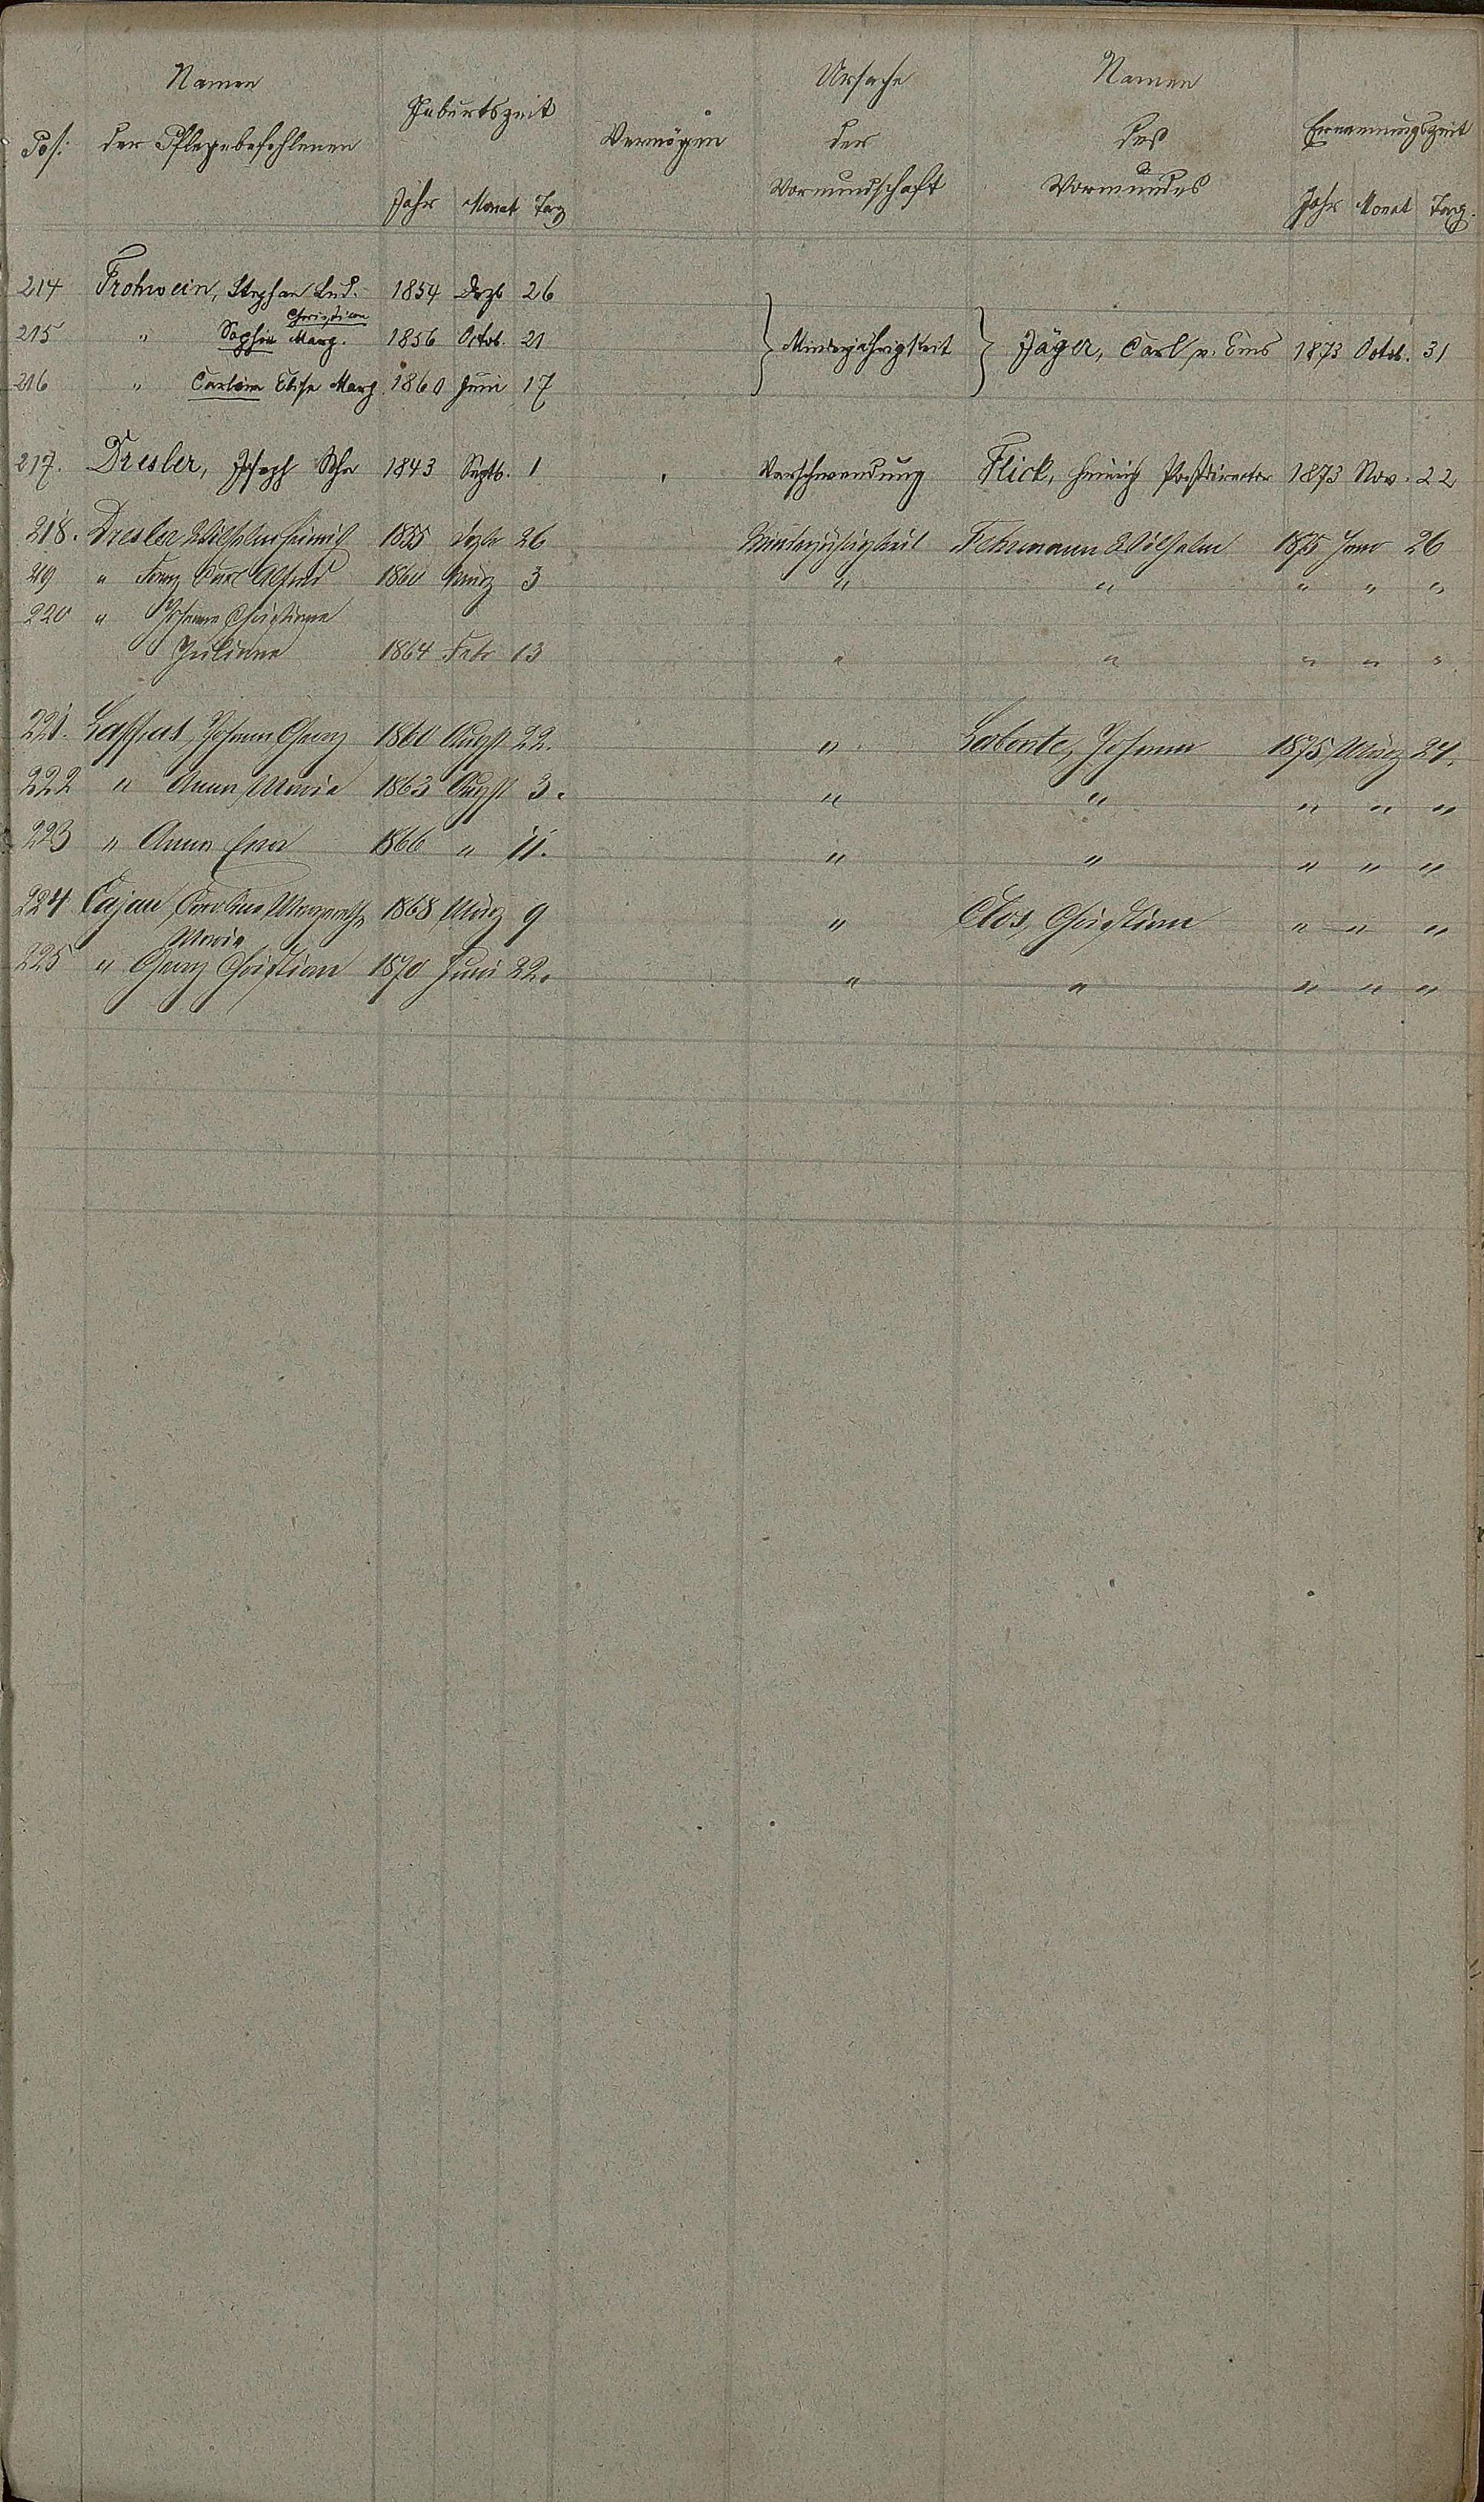 Namen Ursache Namen
Pos: der Pflegebefohlenen Geburtszeit Vermögen der des Ernennungszeit
Jahr Monat Tag Vormundschaft Vormundes Jahr Monat Tag.
214 Frohwein, Stephan Lud. 1854 Dezb 26
Christiane
215 " Sophie Marg. 1856 Octob. 21 Minderjährigkeit Jäger, Carl v. Ems 1873 Octob. 31
216 " Carline Elise Marg. 1860 Juni 17
217. Dresler, Joseph Sohn 1843 Septb. 1 Verschwendung Flick, Heinrich Postdirector 1873 Nov. 22
218. Dresler Wilhelm Heinrich 1855 Dezbr 26 Minderjährigkeit Fehrmann Wilhelm 1875 Janr 26
219 " Franz Carl Alfred 1860 März 3 " " " " "
220 " Johanne Christiane
Juliane 1864 Febr 13 " " " " "
221. Johann Georg 1860 August 22. " Labonte, Johann 1875 März 24.
222 " Anna Maria 1863 August 3. " " " " "
223 " Anna Eva 1866 " 11. " " " " "
224 Cajau, Caroline Margareth 1868 März 9 " Clos, Christian " " "
Maria
225 " Georg Christian 1870 Juni 22. " " " " "